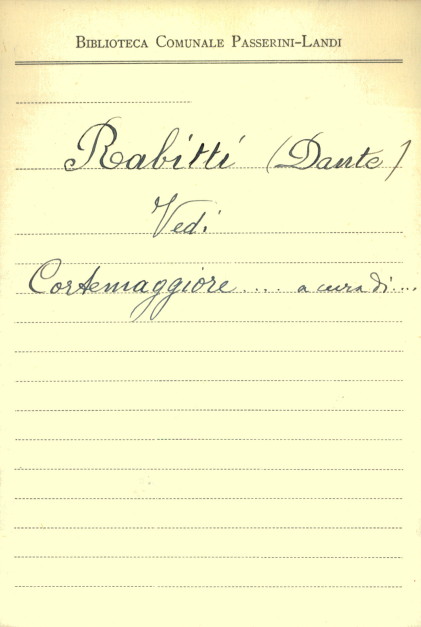 Biblioteca Comunale Passerini-Landi
Rabitti (Dante)
Vedi
Cortemaggiore .... a cura di ....